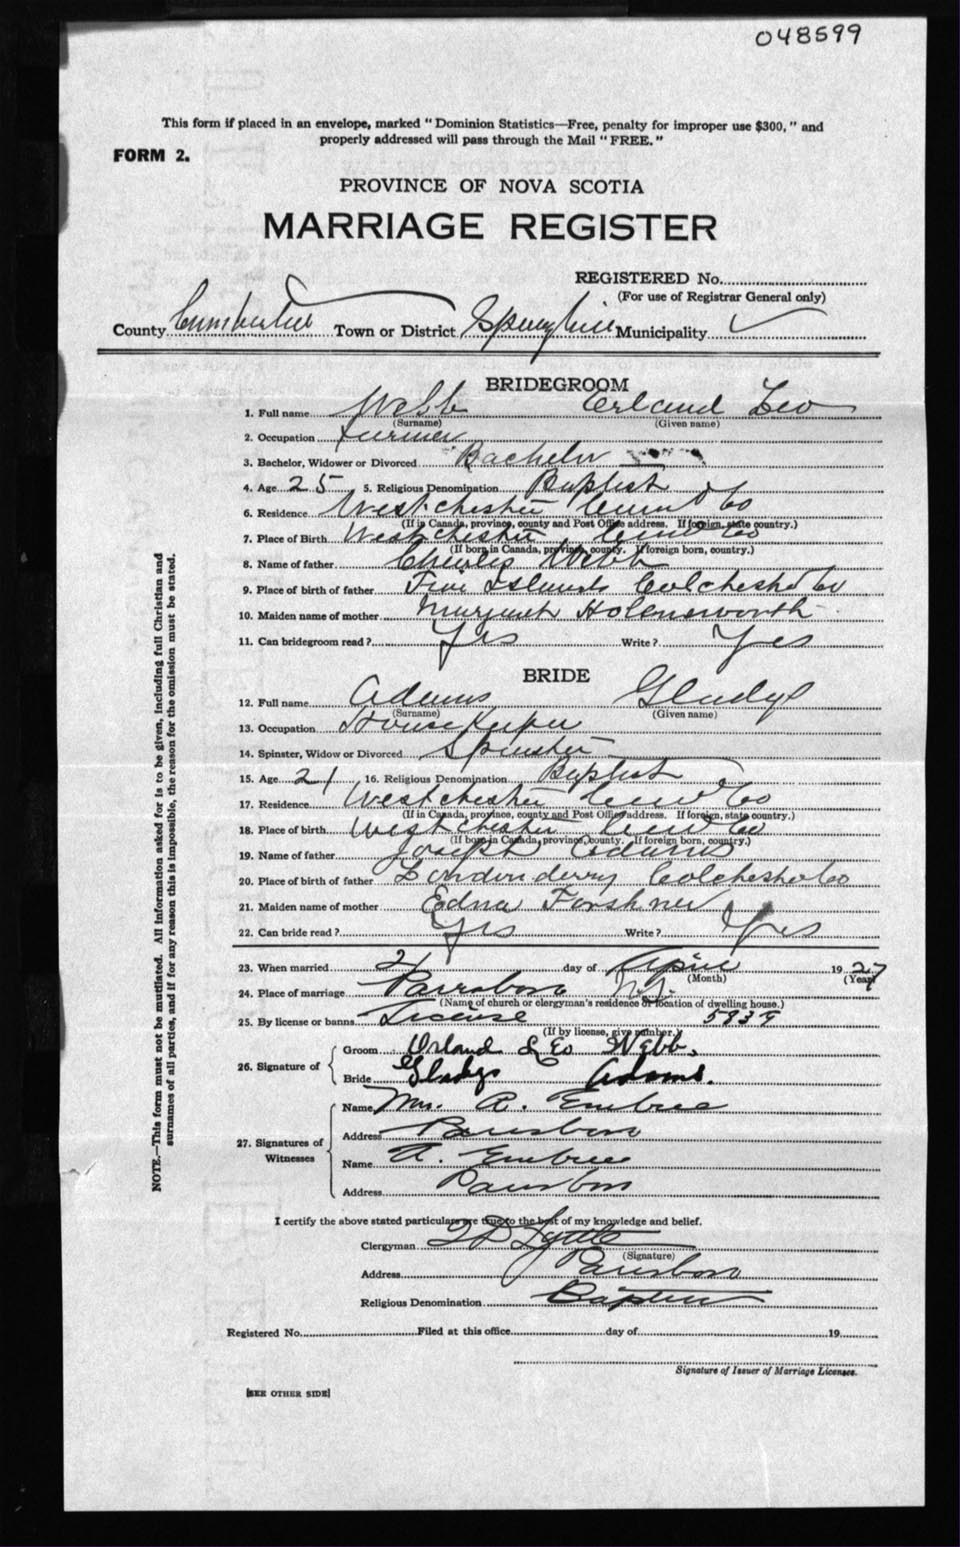 048599
This form if placed in an envelope, marked "Dominion Statistics—Free, penalty for improper use $300," and
properly addressed will pass through the Mail "FREE."
FORM 2.
PROVINCE OF NOVA SCOTIA
MARRIAGE REGISTER
REGISTERED No.
(For use of Registrar General only)
County Cumberland Town or District Springhill Municipality
BRIDEGROOM
1. Full name Webb Erland Leo
(Surname) (Given name)
2. Occupation Farmer
3. Bachelor, Widower or Divorced Bachelor
4. Age 25 5. Religious Denomination Baptist
6. Residence Westchester Cum Co
(If in Canada, province, county and Post Office address. If foreign, state country.)
7. Place of Birth Westchester Cum Co
(If born in Canada, province, county. If foreign born, country.)
8. Name of father Charles Webb
9. Place of birth of father Five Islands Colchester Co
10. Maiden name of mother Margaret Holensworth
11. Can bridegroom read? Yes Write? Yes
BRIDE
12. Full name Adams Gladys
(Surname) (Given name)
13. Occupation House Keeper
14. Spinster, Widow or Divorced Spinster
15. Age 21 16. Religious Denomination Baptist
17. Residence Westchester Cum Co
(If in Canada, province, county and Post Office address. If foreign, state country.)
18. Place of birth Westchester Cum Co
(If born in Canada, province, county. If foreign born, country.)
19. Name of father Joseph Adams
20. Place of birth of father Londonderry Colchester Co
21. Maiden name of mother Edna Forshner
22. Can bride read? Yes Write? Yes
23. When married 21 day of April 1927
(Month) (Year)
24. Place of marriage Parrsboro N.S.
(Name of church or clergyman's residence or location of dwelling house.)
25. By license or banns License 5939
(If by license, give number.)
26. Signature of
Groom Orland Leo Webb.
Bride Gladys Adams.
27. Signatures of Witnesses
Name Mrs. A. Embree
Address Parrsboro
Name A. Embree
Address Parrsboro
I certify the above stated particulars are true to the best of my knowledge and belief.
Clergyman
(Signature)
Address Parrsboro
Religious Denomination Baptist
Registered No. Filed at this office day of 19
Signature of Issuer of Marriage Licenses.
[SEE OTHER SIDE]
NOTE.—This form must not be mutilated. All information asked for is to be given, including full Christian and
surnames of all parties, and if for any reason this is impossible, the reason for the omission must be stated.